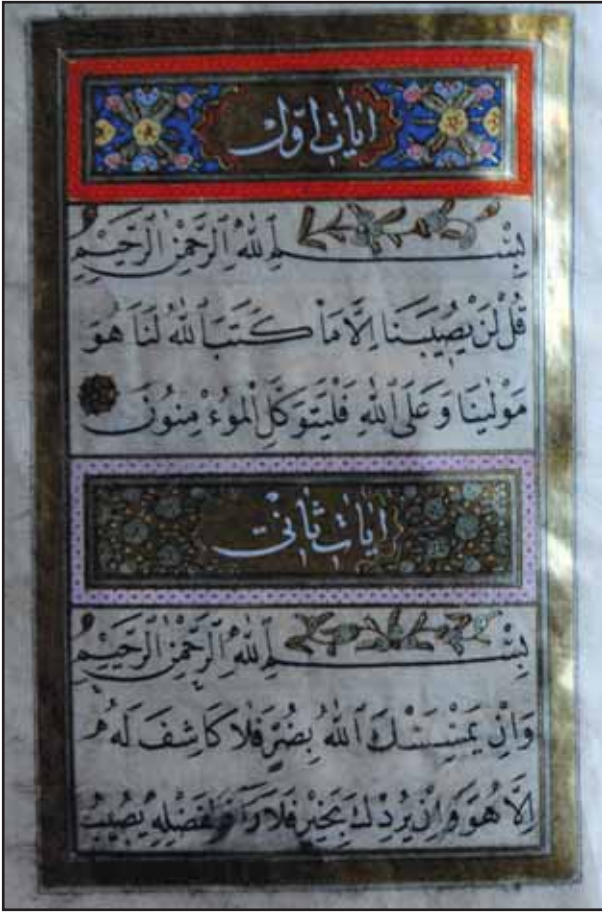 اٰيات اوّل
بِسْمِ ٱللّٰهِ ٱلرَّحْمٰنِ ٱلرَّحِيْمِ
قُلْ لَنْ يُصِيْبَنَا اِلَّا مَا كَتَبَ ٱللّٰهُ لَنَا هُوَ
مَوْلٰينَا وَعَلَى ٱللّٰهِ فَلْيَتَوَكَّلِ ٱلْمُوءْمِنُونَ
اٰيات ثانى
بِسْمِ ٱللّٰهِ ٱلرَّحْمٰنِ ٱلرَّحِيْمِ
وَاِنْ يَمْسَسْكَ ٱللّٰهُ بِضُرٍّ فَلَا كَاشِفَ لَهُ
اِلَّا هُوَ وَاِنْ يُرِدْكَ بِخَيْرٍ فَلَا رَادَّ لِفَضْلِهِ يُصِيبُ